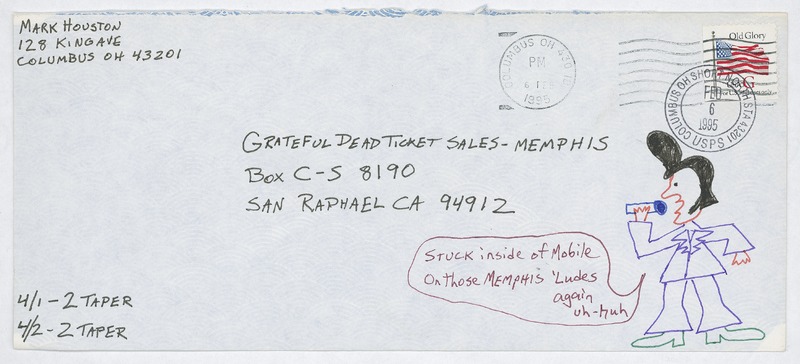 MARK HOUSTON
128 KINGAVE
COLUMBUS OH 43201
COLUMBUS OH 430
PM
1995
Old Glory
G
COLUMBUS OH SHORT NORTH STA 43201
FEB
6
1995
USPS
GRATEFUL DEAD TICKET SALES - MEMPHIS
BOX C-S 8190
SAN RAPHAEL CA 94912
STUCK inside of Mobile
On those MEMPHIS 'Ludes
again
uh-huh
4/1 - 2 TAPER
4/2 - 2 TAPER